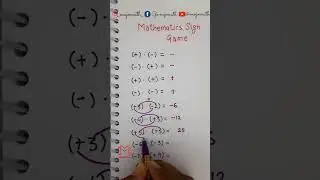 Mathematics Sign
Game
(+) · (-) = -
(-) · (+) = -
(+) · (+) = +
(-) · (-) = +
(+3) (-2) = -6
(-4) · (+3) = -12
(+5) · (+5) = 25
(-3) =